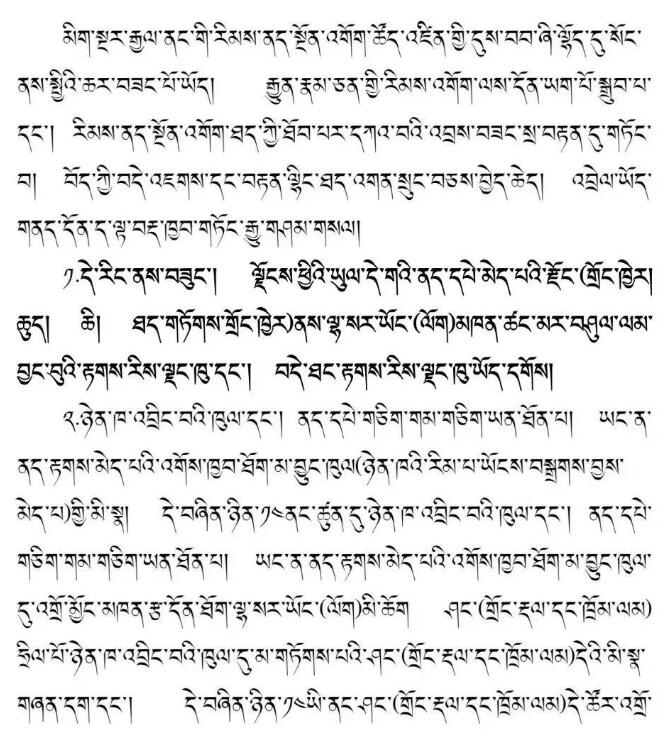 མིག་སྔར་རྒྱལ་ནང་གི་རིམས་ནད་སྔོན་འགོག་ཚོད་འཛིན་གྱི་དུས་བབ་ཞི་ལྷོད་དུ་སོང་
ནས་སྤྱིའི་ཆར་བཟང་པོ་ཡོད། རྒྱུན་རྣམ་ཅན་གྱི་རིམས་འགོག་ལས་དོན་ཡག་པོ་སྒྲུབ་པ་
དང་། རིམས་ནད་སྔོན་འགོག་ཐད་ཀྱི་ཐོབ་པར་དཀའ་བའི་འབྲས་བཟང་སྲ་བརྟན་དུ་གཏོང་
བ། བོད་ཀྱི་བདེ་འཇགས་དང་བརྟན་ལྷིང་ཐད་འགན་སྲུང་བཅས་བྱེད་ཆེད། འབྲེལ་ཡོད་
གནད་དོན་ད་ལྟ་བརྡ་ཁྱབ་གཏོང་རྒྱུ་གཤམ་གསལ།
༡.དེ་རིང་ནས་བཟུང་། ལྗོངས་ཕྱིའི་ཡུལ་དེ་གའི་ནད་དཔེ་མེད་པའི་རྫོང་(གྲོང་ཁྱེར།
ཆུད། ཆི། ཐད་གཏོགས་གྲོང་ཁྱེར)ནས་ལྷ་སར་ཡོང་(ལོག)མཁན་ཚང་མར་བཤུལ་ལམ་
བྱང་བུའི་རྟགས་རིས་ལྗང་ཁུ་དང་། བདེ་ཐང་རྟགས་རིས་ལྗང་ཁུ་ཡོད་དགོས།
༢.ཉེན་ཁ་འབྲིང་བའི་ཁུལ་དང་། ནད་དཔེ་གཅིག་གམ་གཅིག་ཡན་ཐོན་པ། ཡང་ན་
ནད་རྟགས་མེད་པའི་འགོས་ཁྱབ་ཐོག་མ་བྱུང་ཁུལ(ཉེན་ཁའི་རིམ་པ་ཡོངས་བསྒྲགས་བྱས་
མེད་པ)གྱི་མི་སྣ། དེ་བཞིན་ཉིན་༡༤ནང་ཚུན་དུ་ཉེན་ཁ་འབྲིང་བའི་ཁུལ་དང་། ནད་དཔེ་
གཅིག་གམ་གཅིག་ཡན་ཐོན་པ། ཡང་ན་ནད་རྟགས་མེད་པའི་འགོས་ཁྱབ་ཐོག་མ་བྱུང་ཁུལ་
དུ་འགྲོ་མྱོང་མཁན་རྩ་དོན་ཐོག་ལྷ་སར་ཡོང་(ལོག)མི་ཆོག ཤང་(གྲོང་རྡལ་དང་ཁྲོམ་ལམ)
ཧྲིལ་པོ་ཉེན་ཁ་འབྲིང་བའི་ཁུལ་དུ་མ་གཏོགས་པའི་ཤང་(གྲོང་རྡལ་དང་ཁྲོམ་ལམ)དེའི་མི་སྣ་
གཞན་དག་དང་། དེ་བཞིན་ཉིན་༡༤ཡི་ནང་ཤང་(གྲོང་རྡལ་དང་ཁྲོམ་ལམ)དེ་ཚོར་འགྲོ་